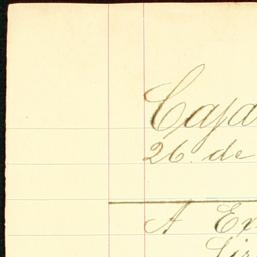 Caja
26. de
A Ex